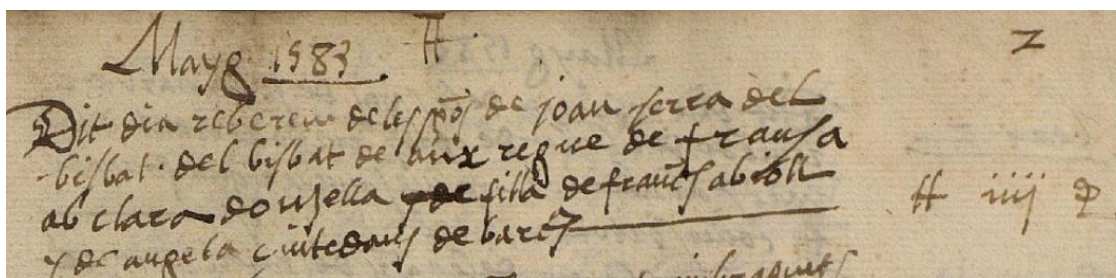 Mayg 1583. tt 2
Dit dia reberem delesspōs de joan serra del
bisbat del bisbat de aux regne de fransa
ab clara donsella y de filla de franc̄s abioll tt iiij d
y de angela ciutedans de barc̄a